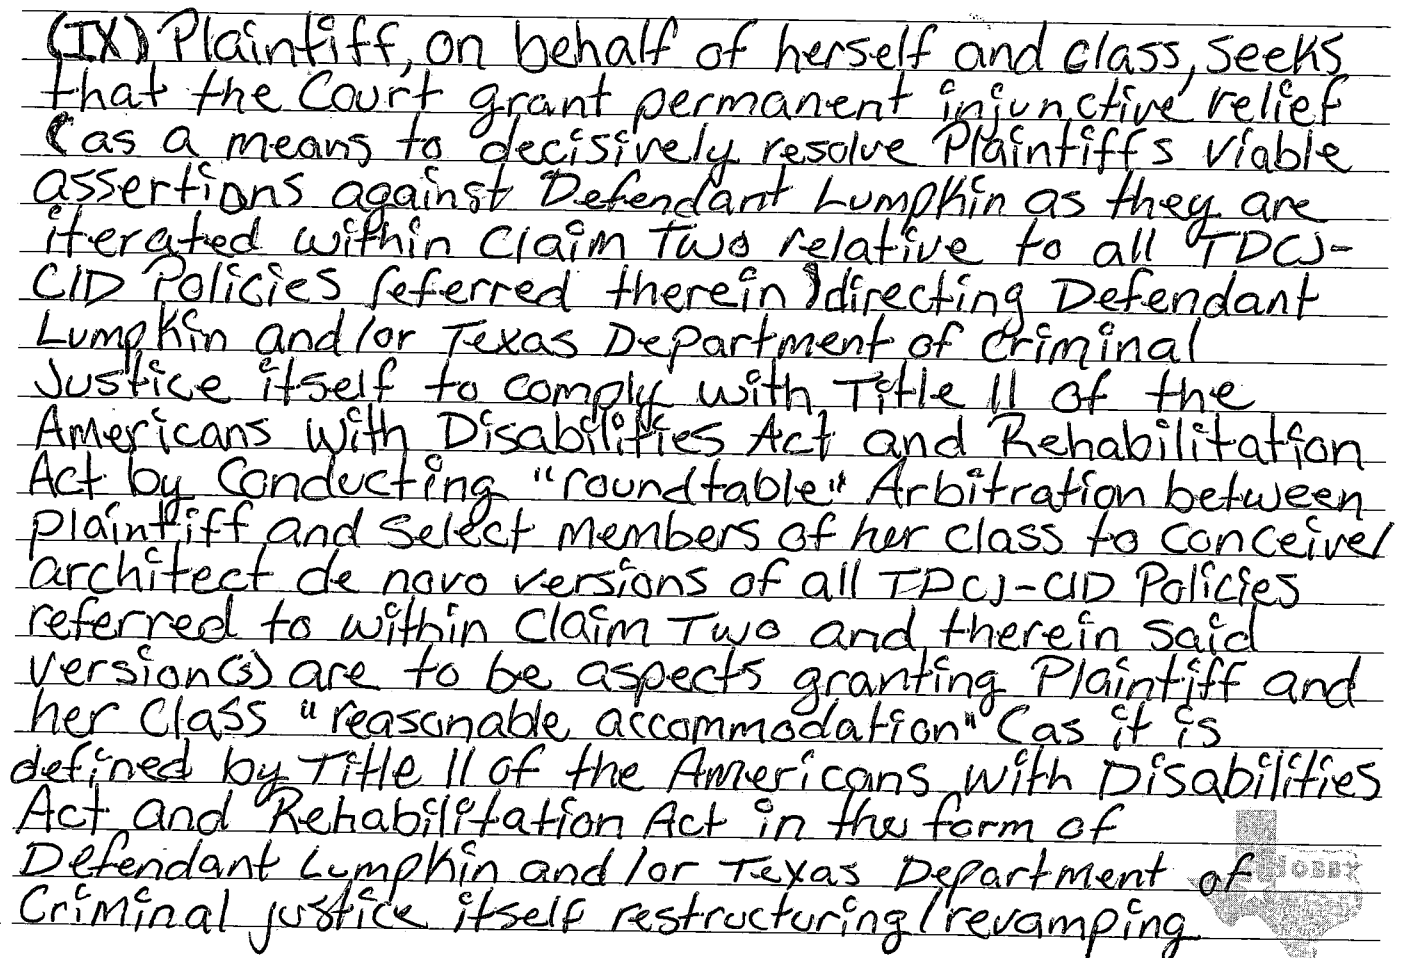 (IX) Plaintiff, on behalf of herself and class, seeks
that the Court grant permanent injunctive relief
(as a means to decisively resolve Plaintiffs viable
assertions against Defendant Lumpkin as they are
iterated within Claim Two relative to all TDCJ-
CID Policies referred therein) directing Defendant
Lumpkin and/or Texas Department of Criminal
Justice itself to comply with Title II of the
Americans With Disabilities Act and Rehabilitation
Act by Conducting "roundtable" Arbitration between
Plaintiff and Select Members of her class to conceive/
architect de novo versions of all TDCJ-CID Policies
referred to within Claim Two and therein said
version(s) are to be aspects granting Plaintiff and
her Class "reasonable accommodation" (as it is
defined by Title II of the Americans with Disabilities
Act and Rehabilitation Act in the form of
Defendant Lumpkin and/or Texas Department of
Criminal justice itself restructuring/revamping
HOBBY